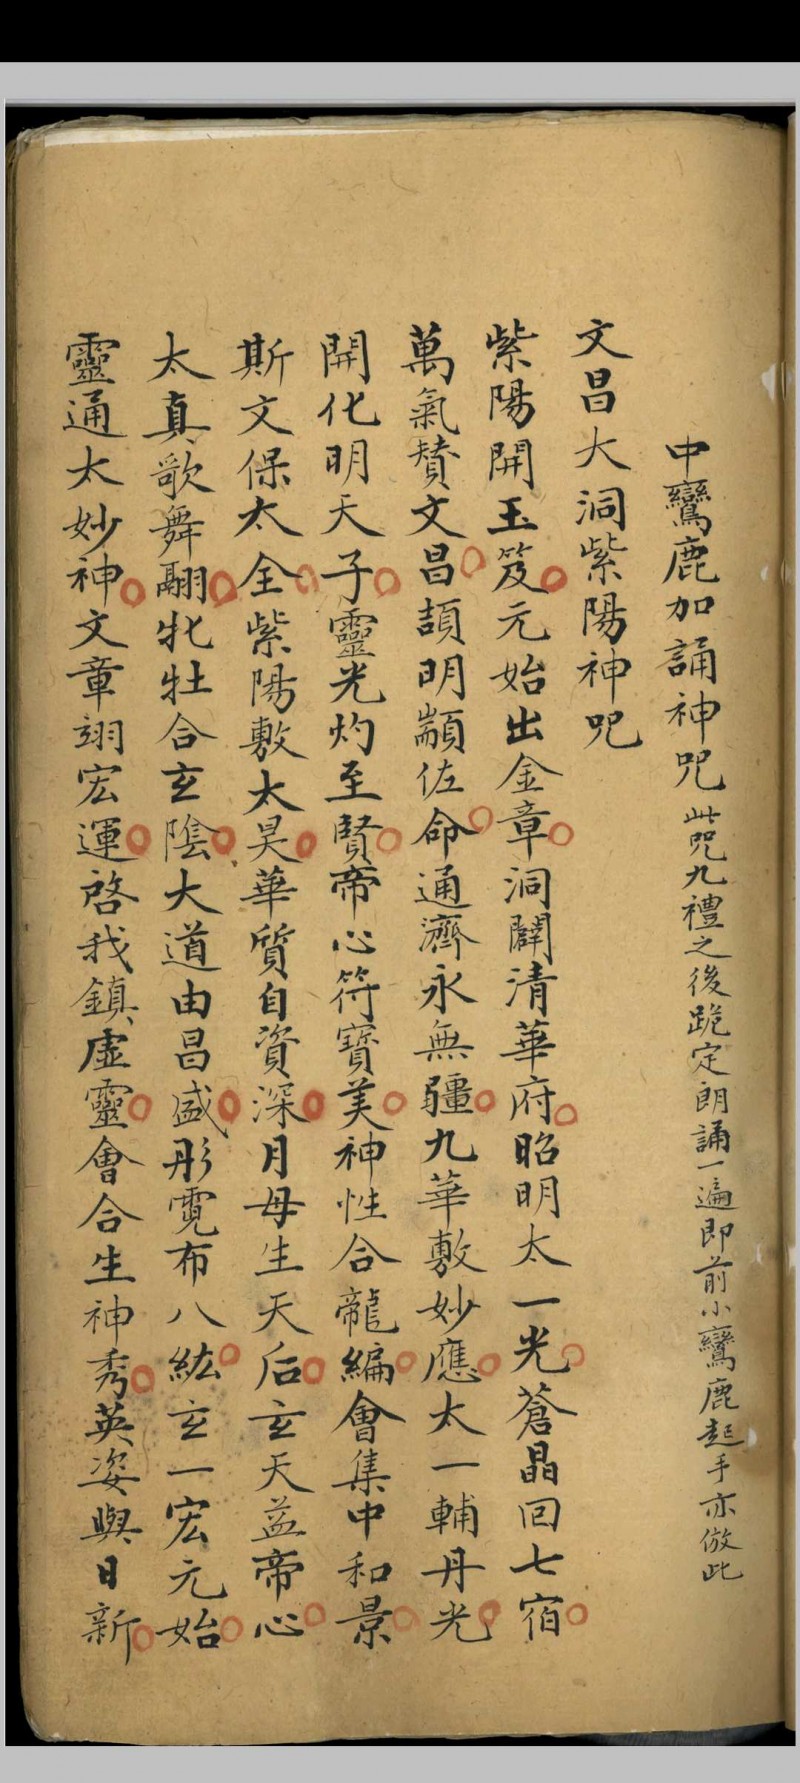 中鸞鹿加誦神咒 此咒九禮之後跪定朗誦一遍即前小鸞鹿起手亦倣此
文昌大洞紫陽神咒
紫陽開玉笈元始出金章洞闢清華府昭明太一光蒼晶回七宿
萬氣贊文昌頡明顓佐命通濟永無疆九華敷妙應太一輔丹光
開化明天子靈光灼至賢帝心符寶美神性合龍編會集中和景
斯文保太全紫陽敷太昊華質自資深月母生天后玄天益帝心
太真歌舞翮牝牡合玄陰大道由昌盛彤霓布八紘玄一宏元始
靈通太妙神文章翊宏運啓我鎮虛靈會合生神秀英姿與日新